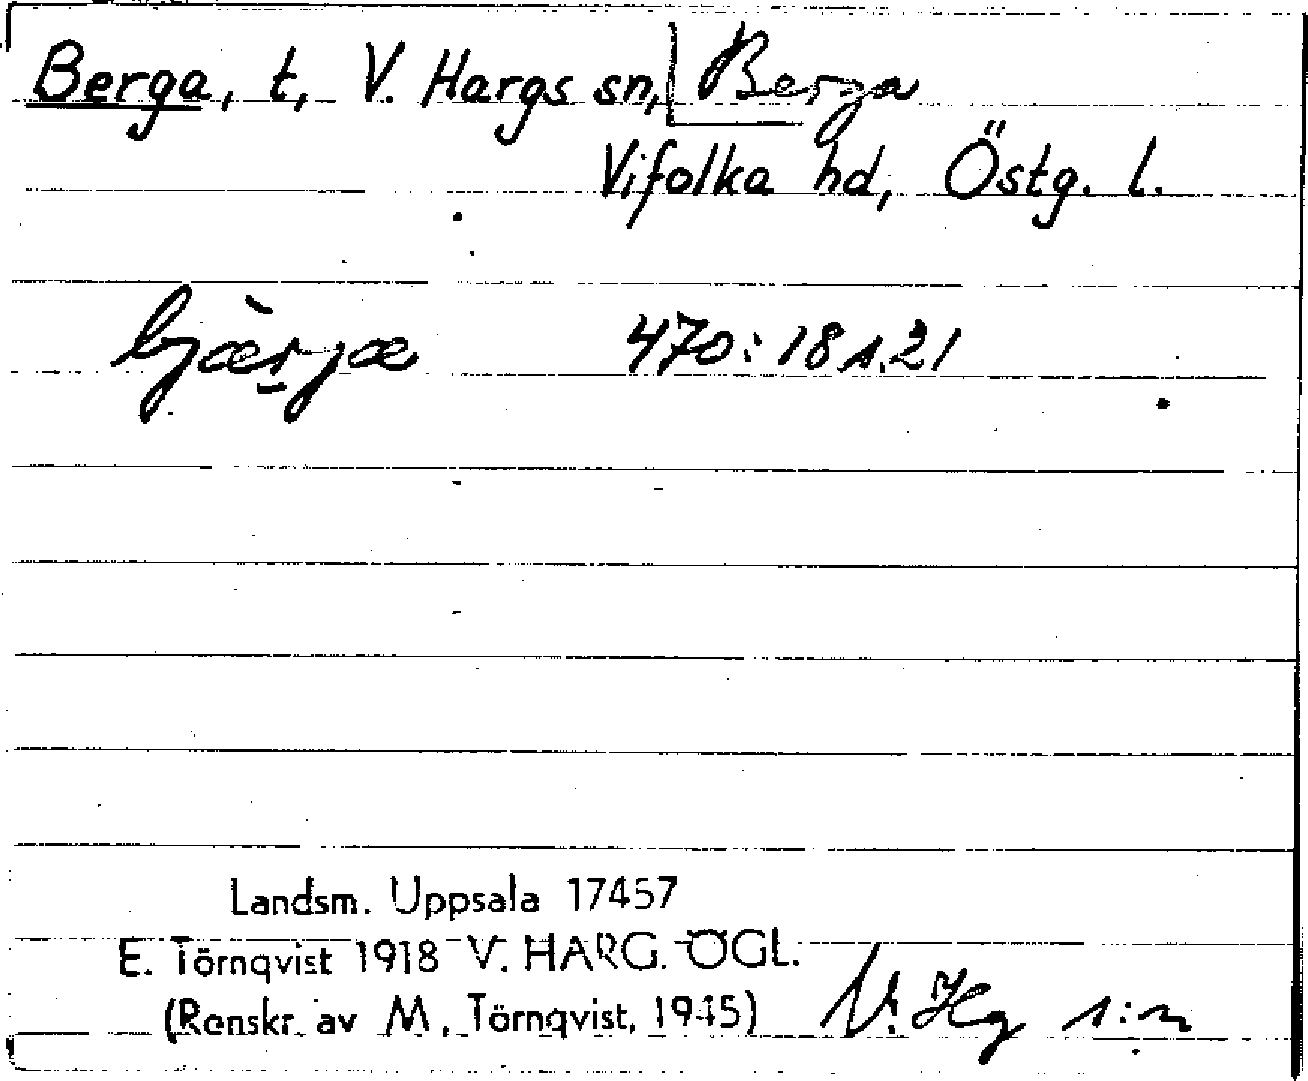 Berga, t, V. Hargs sn, Berga
Vifolka hd, Östg. l.
bjæ̀rjæ 470: 18 s. 21
Landsm. Uppsala 17457
E. Törnqvist 1918 V. HARG. ÖGL.
(Renskr. av M. Törnqvist, 1945) V. Hg s:n